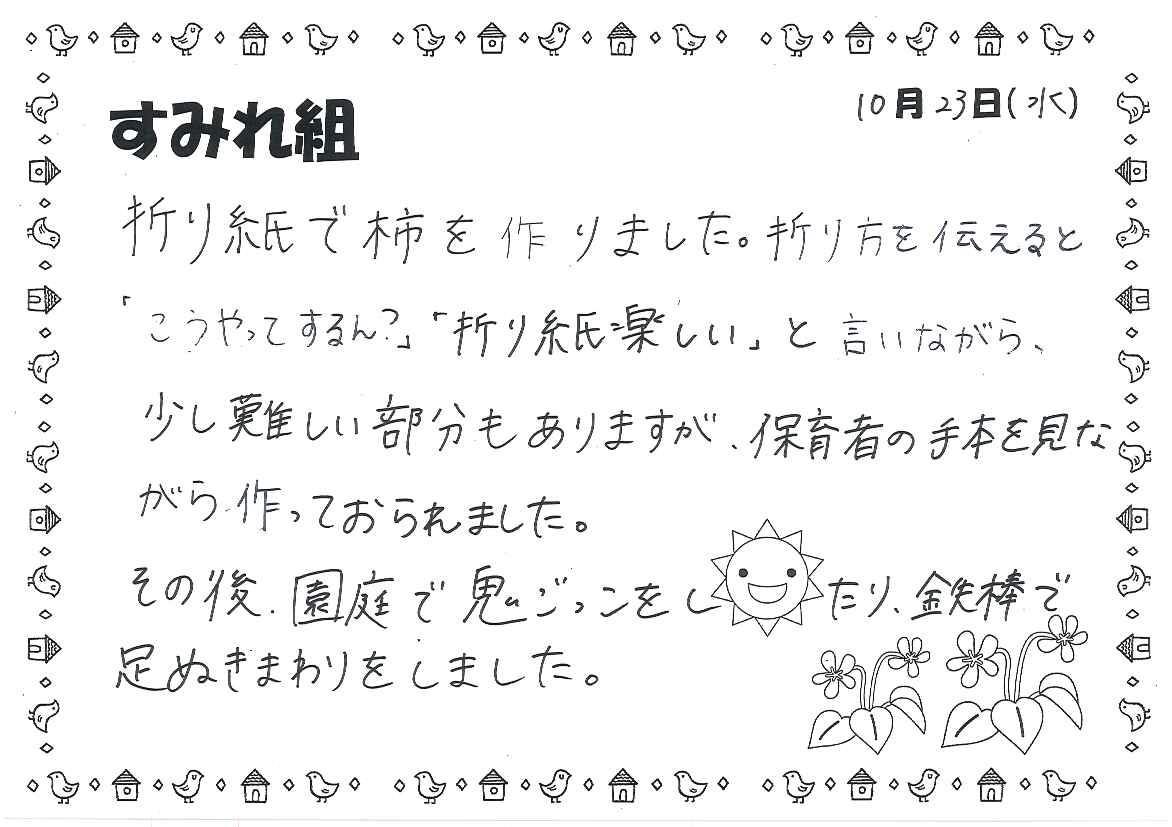 すみれ組
10月23日(水)
折り紙で柿を作りました。折り方を伝えると
「こうやってするん?」「折り紙楽しい」と言いながら、
少し難しい部分もありますが、保育者の手本を見な
がら作っておられました。
その後、園庭で鬼ごっこをしたり、鉄棒で
足ぬきまわりをしました。